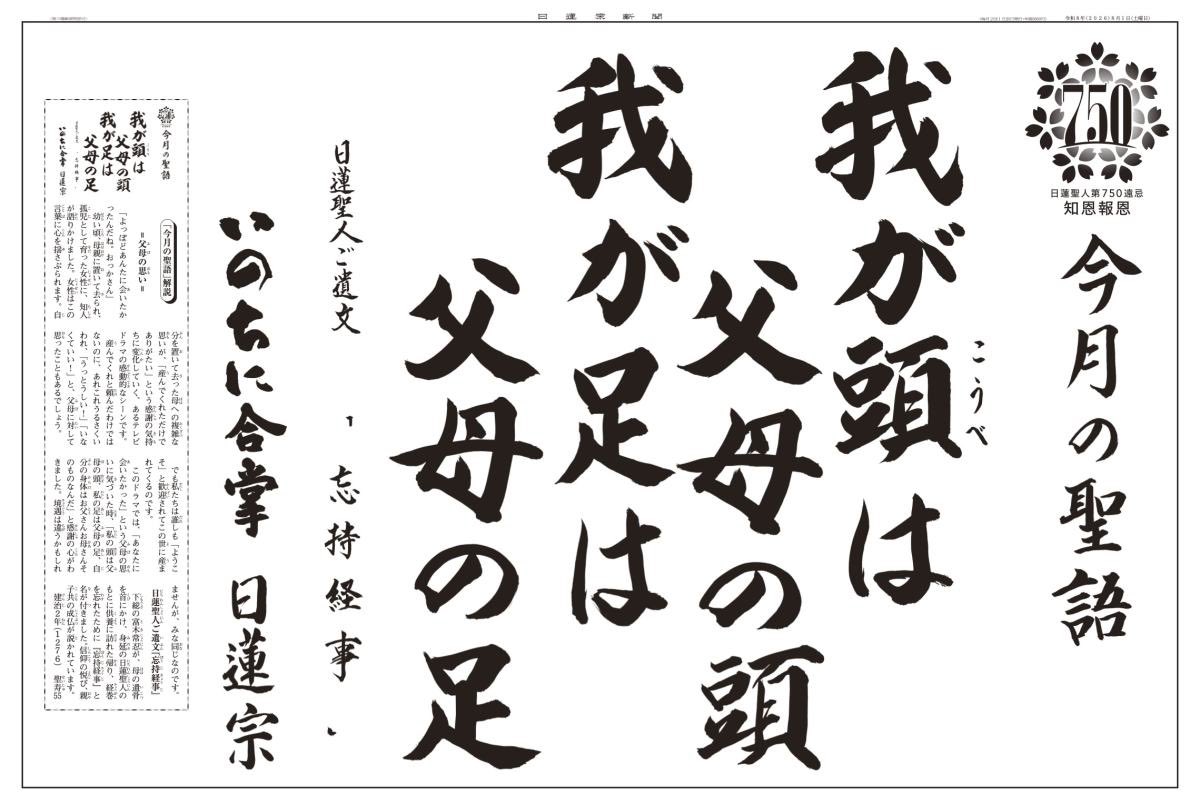 日蓮宗新聞
令和8年(2026)8月1日(土曜日)
750
日蓮聖人第750遠忌
知恩報恩
今月の聖語
我が頭は
こうべ
父母の頭
我が足は
父母の足
日蓮聖人ご遺文
「忘持経事」
いのちに合掌 日蓮宗
今月の聖語
我が頭は
父母の頭
我が足は
父母の足
いのちに合掌 日蓮宗
「今月の聖語」解説
=父母の思い=
「よっぽどあんたに会いたか
ったんだね。おっかさん」
幼い頃、母親に置いて去られ、
孤児として育った女性に、知人
が語りかけました。女性はこの
言葉に心を揺さぶられます。自
分を置いて去った母への複雑な
思いが、「産んでくれただけで
ありがたい」という感謝の気持
ちに変化していく、あるテレビ
ドラマの感動的なシーンです。
産んでくれと頼んだわけでは
ないのに、あれこれうるさくい
われ、「うっとうしい!」「いな
くていい!」と、父母に対して
思ったこともあるでしょう。
でも私たちは誰しも「ようこ
そ」と歓迎されてこの世に産ま
れてくるのです。
このドラマでは、「あなたに
会いたかった」という父母の思
いに気づいた時、「私の頭は父
母の頭、私の足は父母の足、自
分の身体はお父さんお母さんそ
のものなんだ」と感謝の心がわ
きました。境遇は違うかもしれ
ませんが、みな同じなのです。
日蓮聖人ご遺文「忘持経事」
下総の富木常忍が、母の遺骨
を首にかけ、身延の日蓮聖人の
もとに供養に訪れた帰り、経巻
を忘れたために「忘持経事」と
名が付きました。信仰の悦び、親
子共の成仏が説かれています。
建治2年(1276) 聖寿55